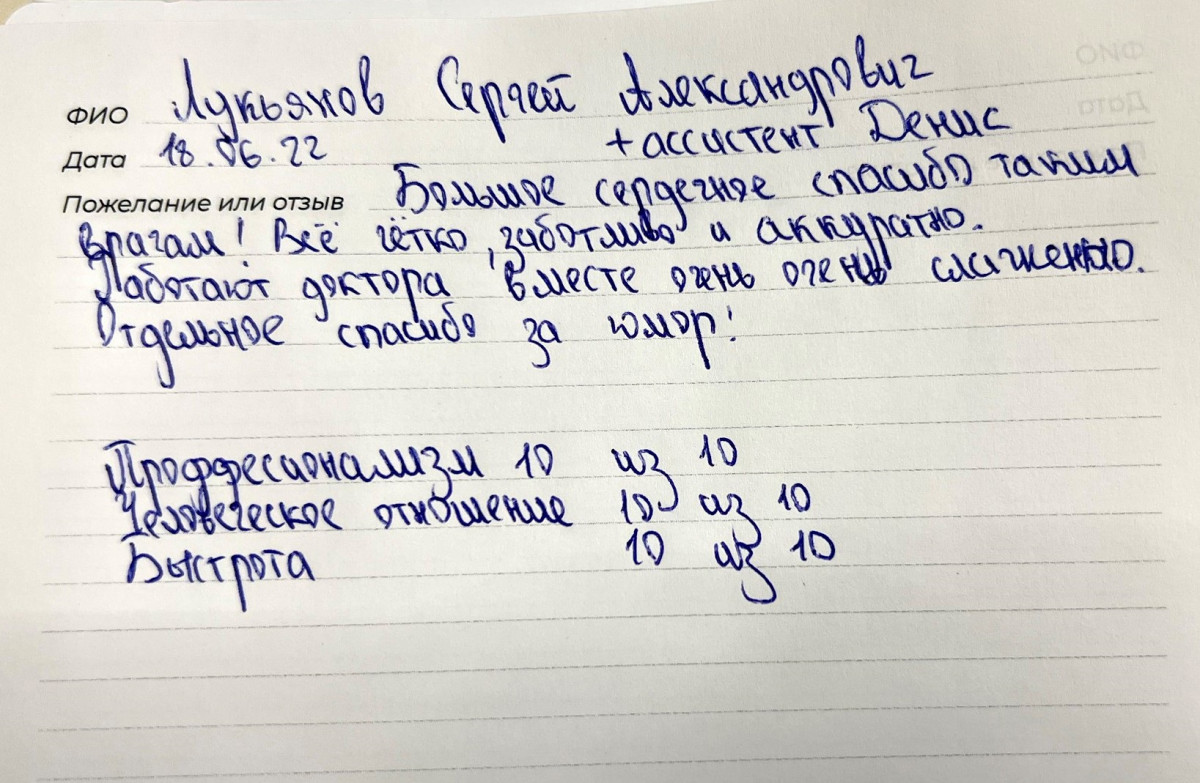 ФИО Лукьянов Сергей Александрович
Дата 18.06.22 + ассистент Денис
Пожелание или отзыв Большое сердечное спасибо таким
врачам! Всё чётко, заботливо и аккуратно.
Работают доктора вместе очень очень слаженно.
Отдельное спасибо за юмор!
Проффесионализм 10 из 10
Человеческое отношение 10 из 10
Быстрота 10 из 10
ФИО
Дата